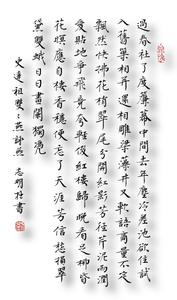 過春社了度簾幕中間去年塵冷差池欲住試
入舊巢相並還相雕梁藻井又軟語商量不定
飄然快拂花梢翠尾分開紅影芳徑芹泥雨潤
愛貼地爭飛競誇輕俊紅樓歸晚看足柳昏
花暝應自棲香穩便忘了天涯芳信愁損翠
黛雙蛾日日畫闌獨凭
史達祖雙〻燕詠燕 志明抄書